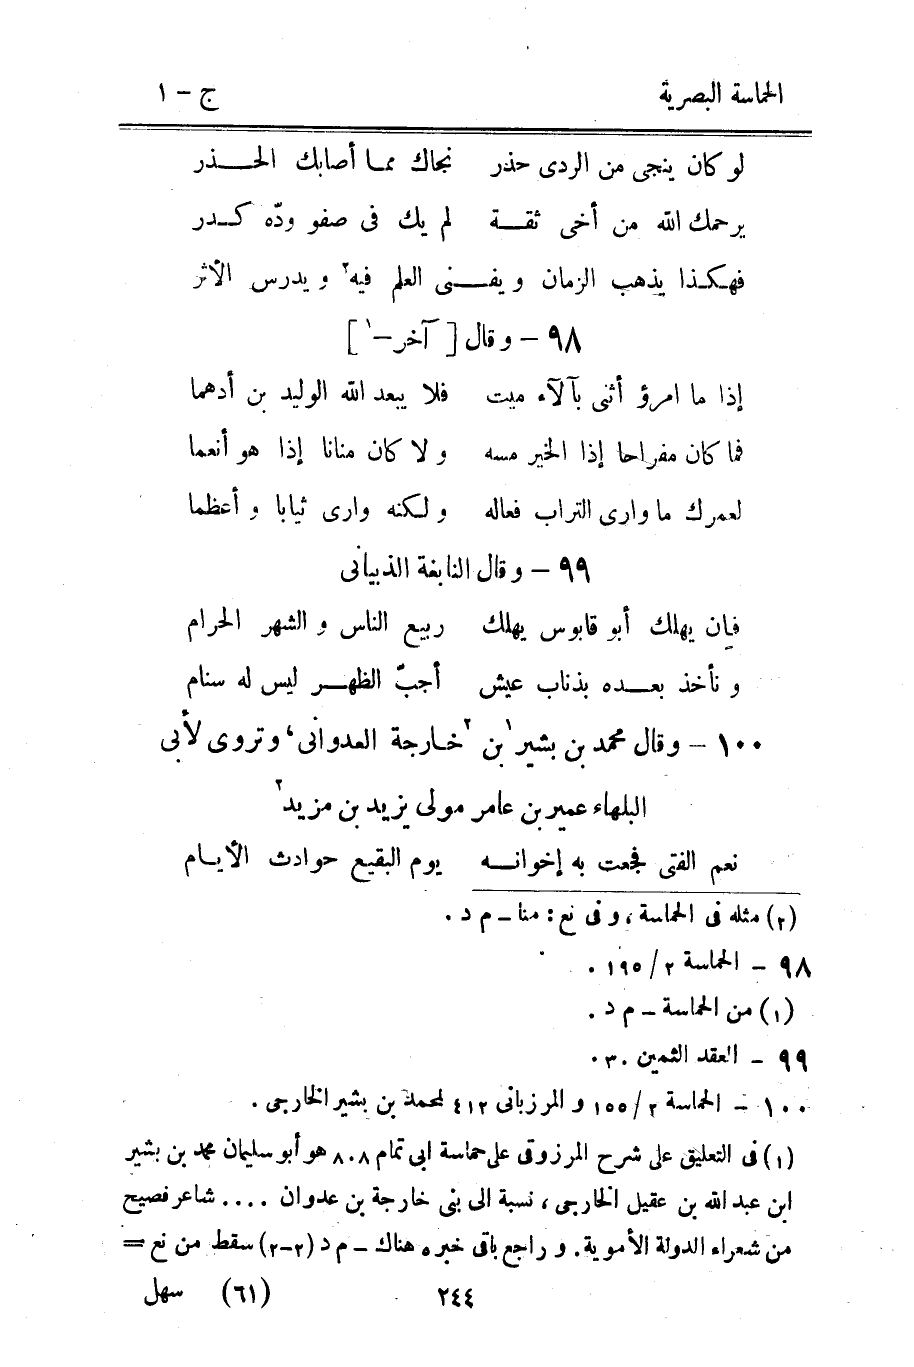 الحماسة البصرية ج – ١
لو كان ينجى من الردى حذر نجاك ممـا أصابك الحـــذر
يرحمك الله من أخى ثقـــة لم يك فى صفو ودّه كـدر
فهكـذا يذهب الزمان و يفــنى العلم فيه٢ و يدرس الأثر
٩٨ – و قال [ آخر–١ ]
إذا ما امرؤ أثنى بآلآء ميت فلا يبعد الله الوليد بن أدهما
فما كان مفراحا إذا الخير مسه و لا كان منانا إذا هو أنعما
لعمرك ما وارى التراب فعاله و لـكنه وارى ثيابا و أعظما
٩٩ – و قال النابغة الذبيانى
فإن يهلك أبو قابوس يهلك ربيع الناس و الشهر الحرام
و نأخذ بعـــده بذناب عيش أجبّ الظهـر ليس له سنام
١٠٠ – و قال محمد بن بشير١ بن ٢ خـارجة العدوانى، و تروى لأبى
البلهاء عمير بن عامر مولى يزيد بن مزيد٢
نعم الفتى فجعت به إخوانـــه يوم البقيع حوادث الأيـام
(٢) مثله فى الحماسة، و فى نع: منا – م د .
٩٨ – الحماسة ٢ / ١٩٥ .
(١) من الحماسة – م د .
٩٩ – العقد الثمين ٣٠ .
١٠٠ – الحماسة ٢ / ١٥٥ و المرزبانى ٤١٢ لمحمد بن بشير الخارجى .
(١) فى التعليق على شرح المرزوقى على حماسة ابى تمام ٨٠٨ هو أبو سليمان محمد بن بشير
ابن عبد الله بن عقيل الخارجى، نسبة الى بنى خارجة بن عدوان .... شاعر فصيح
من شعراء الدولة الأموية. و راجع باقى خبره هناك – م د (٢–٢) سقط من نع =
٢٤٤ (٦١) سهل